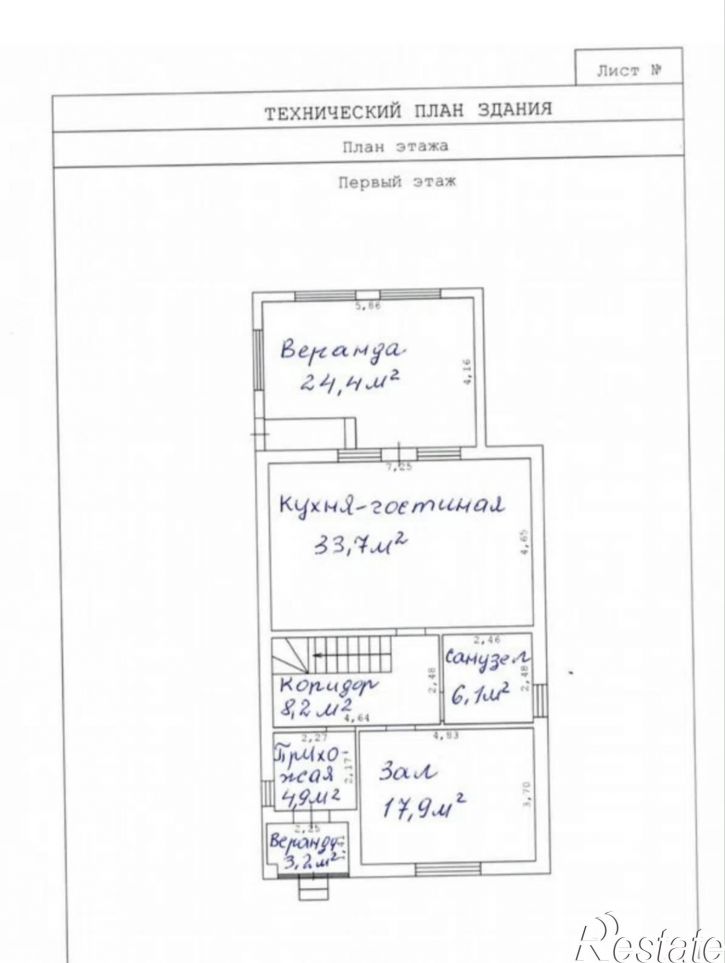 Лист №
ТЕХНИЧЕСКИЙ ПЛАН ЗДАНИЯ
План этажа
Первый этаж
5,86
Веранда
24,4м²
4,16
7,25
Кухня-гостиная
33,7м²
4,65
2,46
Санузел
6,1м²
2,48
2,48
Коридор
8,2м²
4,64
2,27
Прихо-
жая
4,9м²
2,17
4,83
Зал
17,9м²
3,70
2,25
Веранда
3,2м²
1,41
Restate